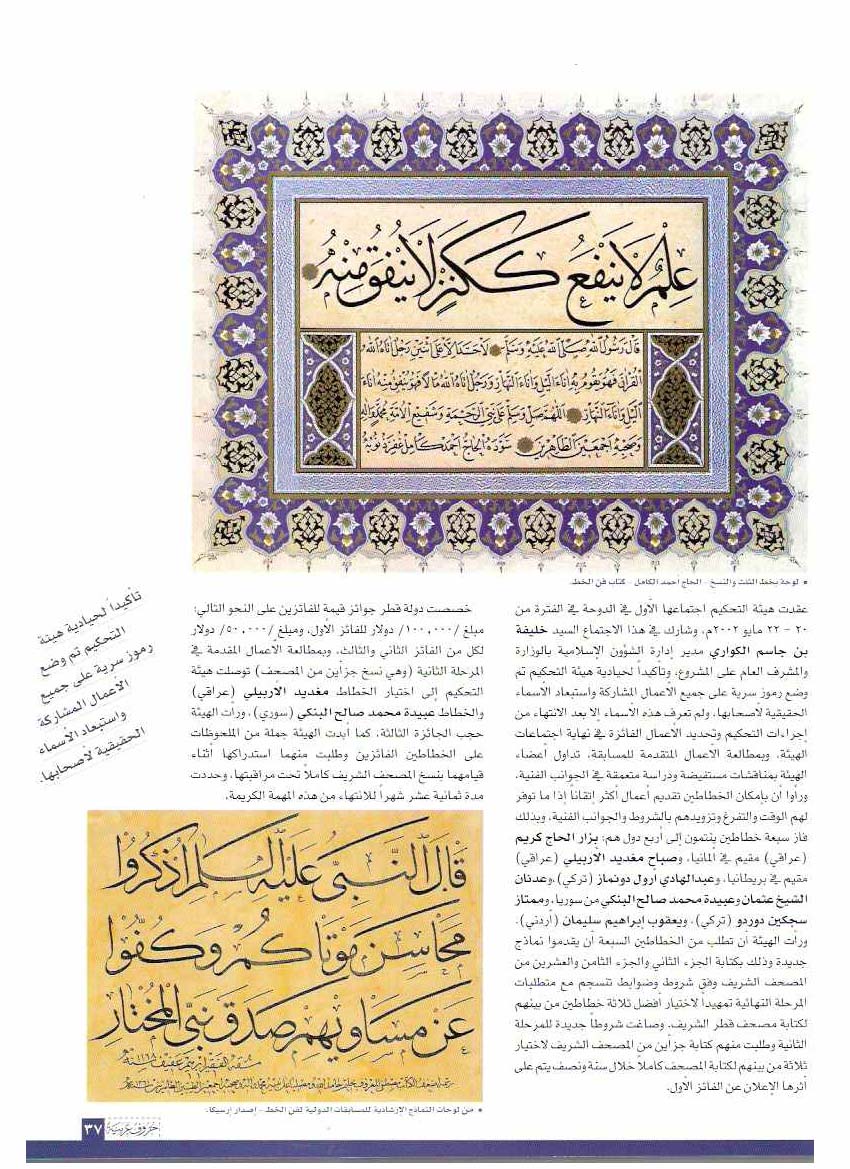 علم لا ينفع ككنز لا ينفق منه
قال رسول الله صلى الله عليه وسلم لا حسد إلا على اثنتين رجل آتاه الله
القرآن فهو يقوم به آناء الليل وآناء النهار ورجل آتاه الله مالا فهو ينفقه منه آناء
الليل وآناء النهار اللهم صل وسلم على نبي الرحمة وشفيع الأمة محمد وآله
وصحبه أجمعين الطاهرين سوده الحاج أحمد كامل غفر ذنوبه
• لوحة بخط الثلث والنسخ - الحاج احمد الكامل - كتاب فن الخط.
عقدت هيئة التحكيم اجتماعها الأول في الدوحة في الفترة من
٢٠ - ٢٢ مايو ٢٠٠٢م، وشارك في هذا الاجتماع السيد خليفة
بن جاسم الكواري مدير إدارة الشؤون الإسلامية بالوزارة
والمشرف العام على المشروع، وتأكيداً لحيادية هيئة التحكيم تم
وضع رموز سرية على جميع الأعمال المشاركة واستبعاد الأسماء
الحقيقية لأصحابها، ولم تعرف هذه الأسماء إلا بعد الانتهاء من
إجراءات التحكيم وتحديد الأعمال الفائزة في نهاية اجتماعات
الهيئة، وبمطالعة الأعمال المتقدمة للمسابقة، تداول أعضاء
الهيئة بمناقشات مستفيضة ودراسة متعمقة في الجوانب الفنية،
ورأوا أن بإمكان الخطاطين تقديم أعمال أكثر إتقاناً إذا ما توفر
لهم الوقت والتفرغ وتزويدهم بالشروط والجوانب الفنية، وبذلك
فاز سبعة خطاطين ينتمون إلى أربع دول هم: بزار الحاج كريم
(عراقي) مقيم في ألمانيا، وصباح مغديد الاربيلي (عراقي)
مقيم في بريطانيا، وعبدالهادي ارول دونماز (تركي)، وعدنان
الشيخ عثمان وعبيدة محمد صالح البنكي من سوريا، وممتاز
سجكين دوردو (تركي)، ويعقوب إبراهيم سليمان (أردني)،
ورأت الهيئة أن تطلب من الخطاطين السبعة أن يقدموا نماذج
جديدة وذلك بكتابة الجزء الثاني والجزء الثامن والعشرين من
المصحف الشريف وفق شروط وضوابط تنسجم مع متطلبات
المرحلة النهائية تمهيداً لاختيار أفضل ثلاثة خطاطين من بينهم
لكتابة مصحف قطر الشريف، وصاغت شروطاً جديدة للمرحلة
الثانية وطلبت منهم كتابة جزأين من المصحف الشريف لاختيار
ثلاثة من بينهم لكتابة المصحف كاملاً خلال سنة ونصف يتم على
أثرها الإعلان عن الفائز الأول.
خصصت دولة قطر جوائز قيمة للفائزين على النحو التالي:
مبلغ /١٠٠,٠٠٠/ دولار للفائز الأول، ومبلغ /٥٠,٠٠٠/ دولار
لكل من الفائز الثاني والثالث، وبمطالعة الأعمال المقدمة في
المرحلة الثانية (وهي نسخ جزأين من المصحف) توصلت هيئة
التحكيم إلى اختيار الخطاط مغديد الاربيلي (عراقي)
والخطاط عبيدة محمد صالح البنكي (سوري)، ورأت الهيئة
حجب الجائزة الثالثة، كما أبدت الهيئة جملة من الملحوظات
على الخطاطين الفائزين وطلبت منهما استدراكها أثناء
قيامهما بنسخ المصحف الشريف كاملاً تحت مراقبتها، وحددت
مدة ثمانية عشر شهراً للانتهاء من هذه المهمة الكريمة.
تأكيداً لحيادية هيئة
التحكيم تم وضع
رموز سرية على جميع
الأعمال المشاركة
واستبعاد الأسماء
الحقيقية لأصحابها.
قال النبي عليه السلام اذكروا
محاسن موتاكم وكفوا
عن مساويهم صدق نبي المختار
• من لوحات النماذج الإرشادية للمسابقات الدولية لفن الخط - إصدار إرسيكا.
حروف عربية ٣٧